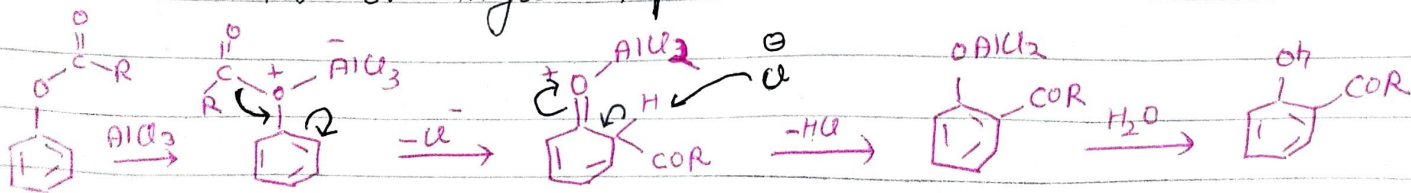 O
C
O R
AlCl₃
O
C
R
+
O
–
AlCl₃
–Cl⁻
+
O
AlCl₂
H
COR
⊖
Cl
–HCl
OAlCl₂
COR
H₂O
OH
COR